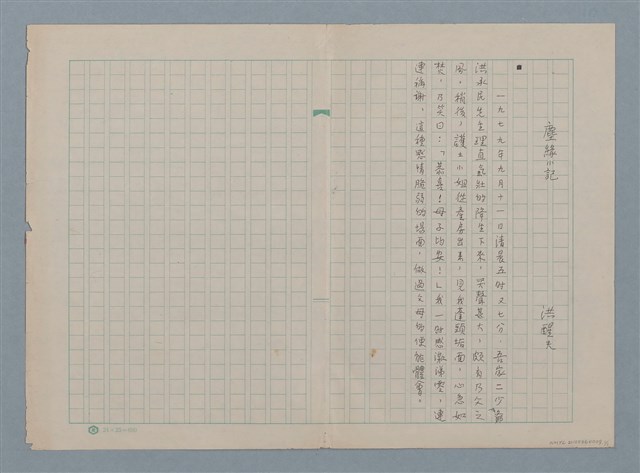 塵緣小記
洪醒夫
一九七九年九月十一日清晨五時又七分，吾家二少爺
洪永民先生理直氣壯的降生下來，哭聲甚大，頗有乃父之
風。稍後，護士小姐從產房出來，見我蓬頭垢面，心急如
焚，乃笑曰：「恭喜！母子均安！」我一時感激涕零，連
連稱謝，這種感情脆弱的場面，做過父母的便能體會。